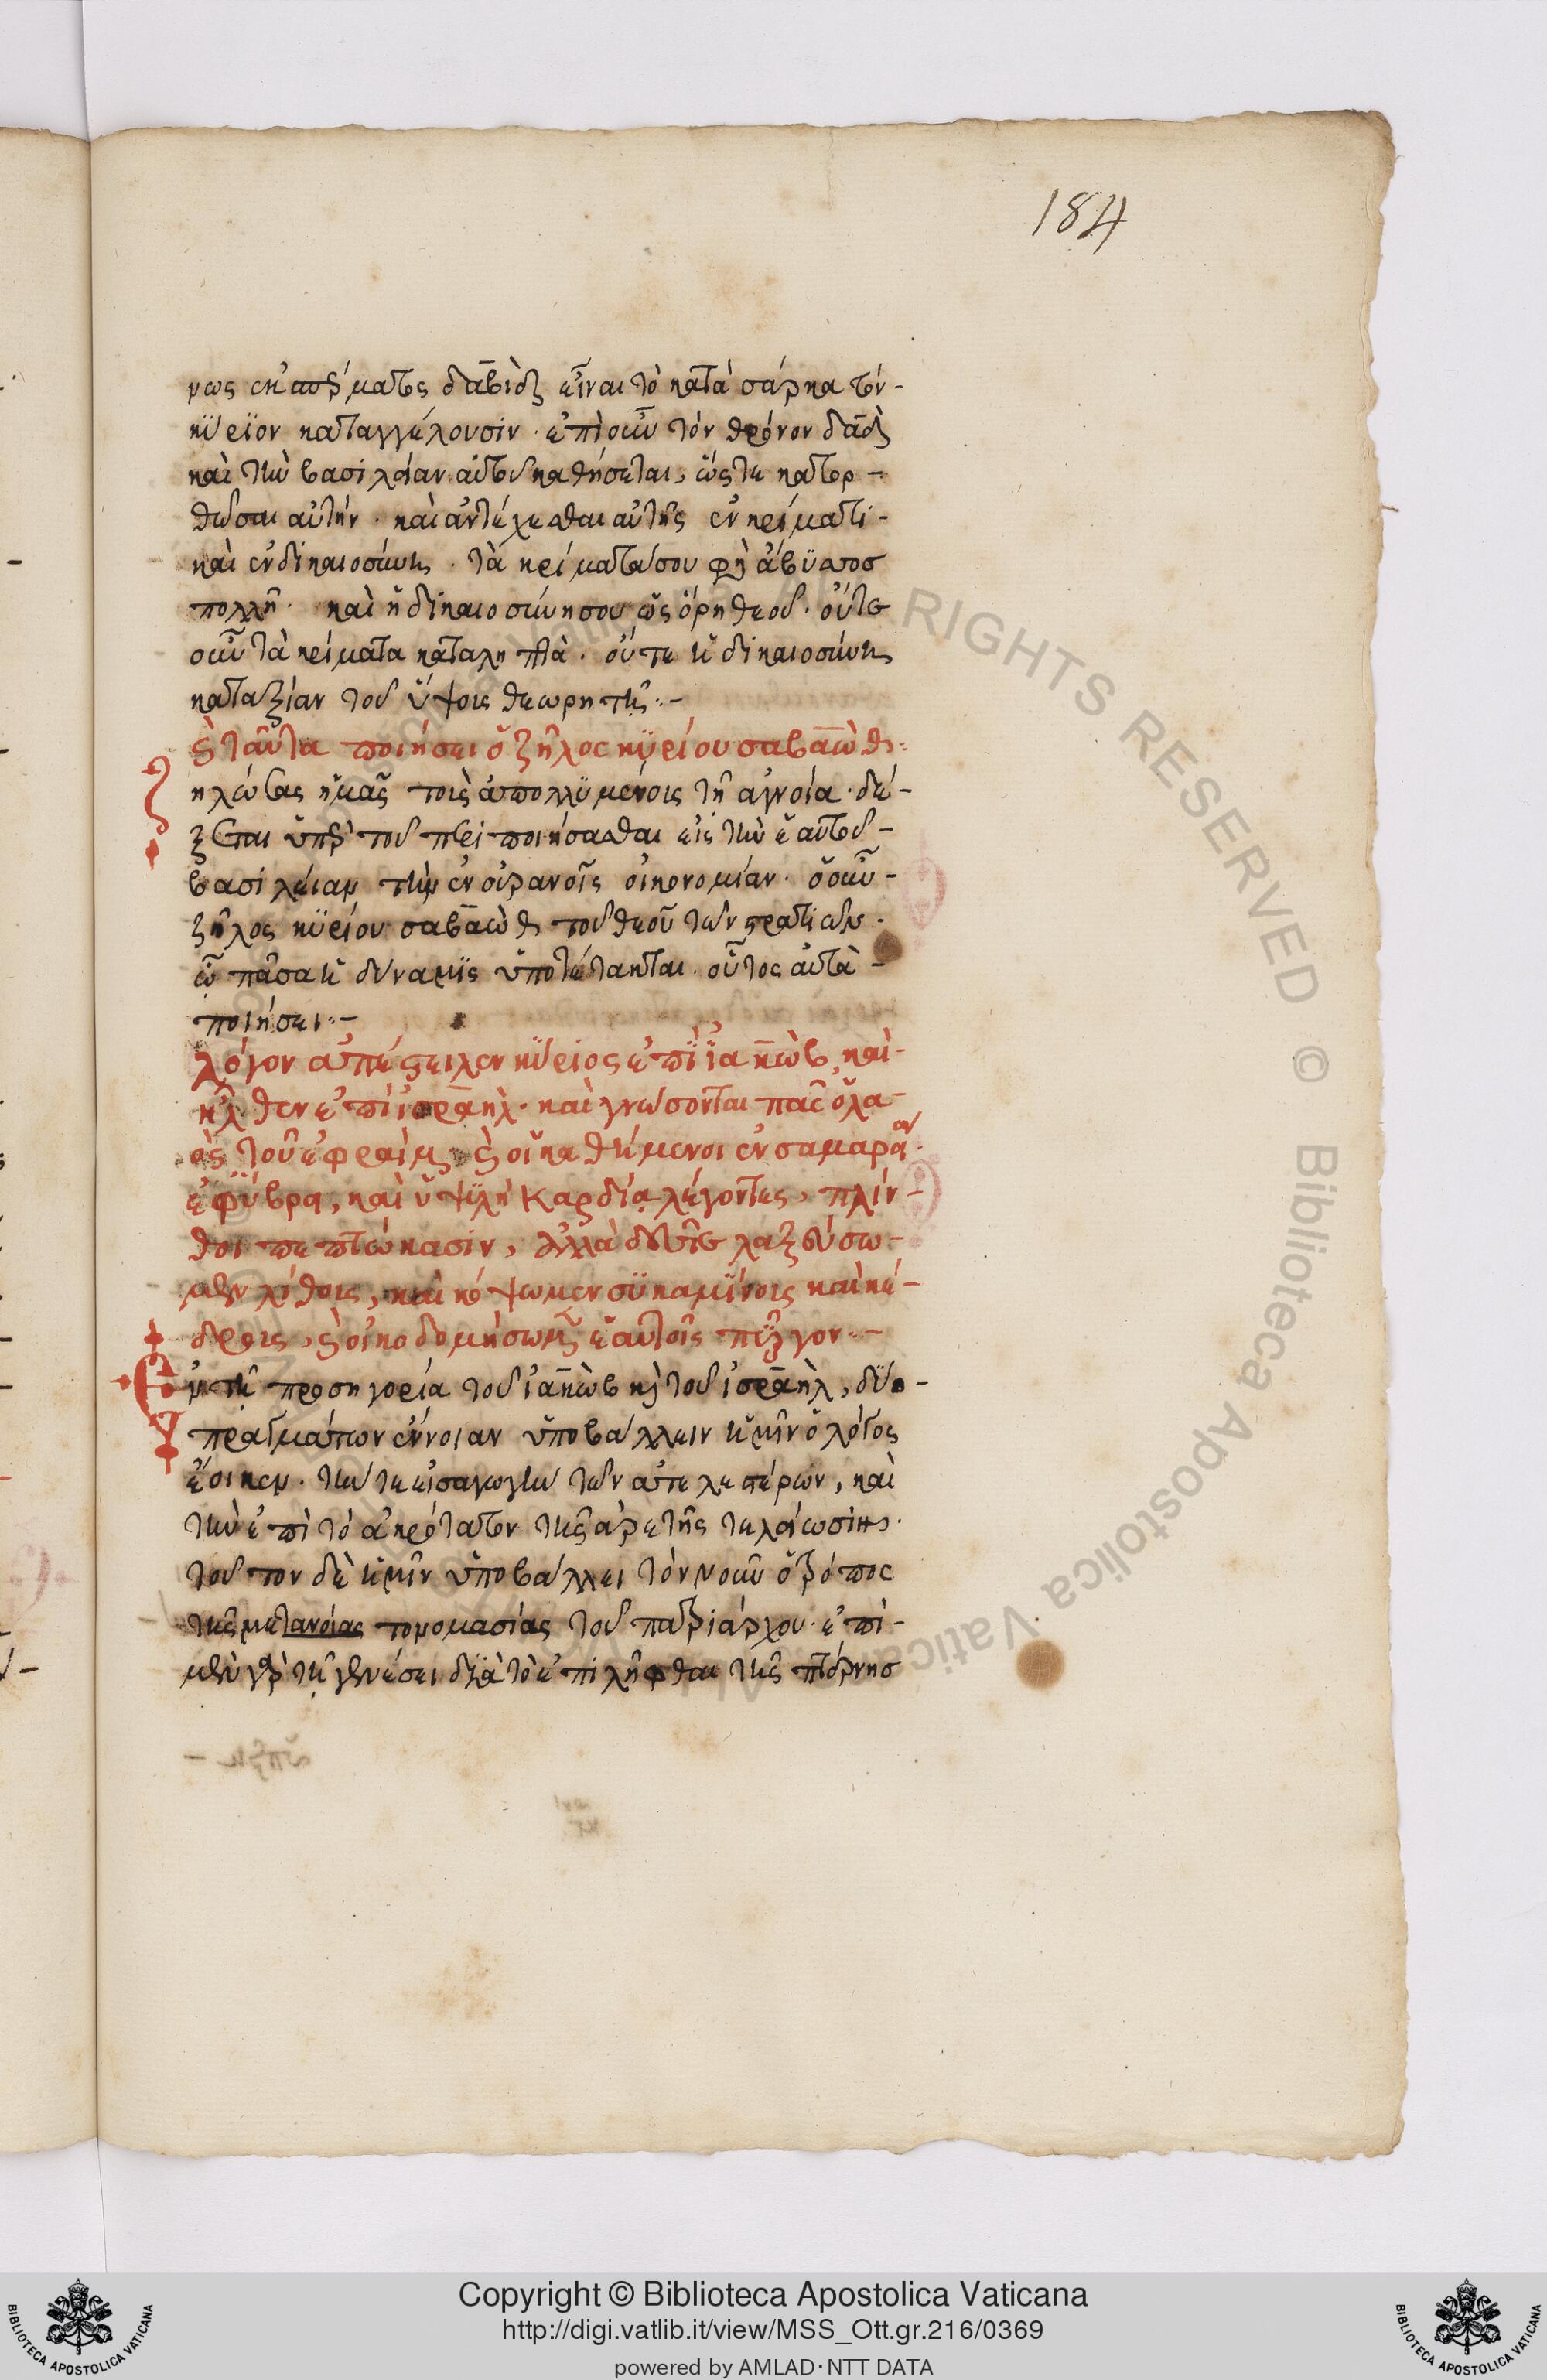 184
ρως ἐκ σπέρματος δαβὶδ εἶναι τὸ κατὰ σάρκα τόν-
κύριον καταγγέλουσιν. ἐπὶ οὖν τὸν θρόνον δαδ
καὶ τὴν βασιλείαν αὐτοῦ καθήσεται, ὥςτε κατορ-
θῶσαι αὐτήν. καὶ ἀντέχεσθαι αὐτῆς ἐν κρίματι-
καὶ ἐν δικαιοσύνη. τὰ κρίματά σου φη ἄβυσσοσ
πολλή. καὶ ἡ δικαιοσύνη σου ὡς ὄρη θεοῦ. οὔτε
οὖν τὰ κρίματα καταληπτὰ. οὔτε ἡ δικαιοσύνη
κατ' ἀξίαν τοῦ ὕψοις θεωρητή:-
ϗ ταῦτα ποιήσει ὁ ζῆλος κυρίου σαβαὼθ:
ζηλώσας ἡμᾶς τοὶς ἀπολλυμένοις τῆ ἀγνοία. δέ-
ξεται ὑπὲρ τοῦ περιποιήσασθαι εἰς τὴν ἑαυτοῦ-
βασιλείαν τὴν ἐν οὐρανοῖς οἰκονομίαν. ὁ οὖν-
ζῆλος κυρίου σαβαὼθ τοῦ θεοῦ τῶν στρατιῶν.
ᾧ πᾶσα ἡ δύναμις ὑποτέτακται. οὗτος αὐτὰ-
ποιήσει:-
λόγον ἀπέστειλεν κύριος ἐπὶ ἰακὼβ, καὶ-
ἦλθεν ἐπὶ ἰσραηλ. καὶ γνώσονται πᾶς ὁ λα-
ὸς τοῦ ἐφραὶμ, ϗ οἱ καθήμενοι ἐν σαμαρεία.
ἐφ' ὕβρα, καὶ ὑψιλὴ καρδία λέγοντες, πλίν-
θοι πεπτώκασιν, ἀλλὰ δεῦτε λαξεύσω-
μεν λίθοις, καὶ κόψωμεν συκαμίνοις καὶ κέ-
δροις, ϗ οἰκοδομήσωμεν ἑαυτοῖς πύργον:-
Ἐν τῆ προσηγορία τοῦ ἰακὼβ κὴ τοῦ ἰσραηλ, δύο-
πραγμάτων ἔννοιαν ὑποβάλλειν ἡμῖν ὁ λόγος
ἔοικεν. τήν τε εἰσαγωγὴν τῶν ἀτελεστέρων, καὶ
τὴν ἐπὶ τὸ ἀκρότατον τῆς ἀρετῆς τελείωσιν.
τοῦτον δὲ ἡμῖν ὑποβάλλει τὸν νοῦν ὁ τρόπος
τῆς μετανοίας τονομασίας τοῦ πατριάρχου. ἐπὶ-
μὲν γὰρ τῆ γενέσει διὰ τὸ ἐπιλῆφθαι τῆς πτέρνησ
Copyright © Biblioteca Apostolica Vaticana
http://digi.vatlib.it/view/MSS_Ott.gr.216/0369
powered by AMLAD·NTT DATA